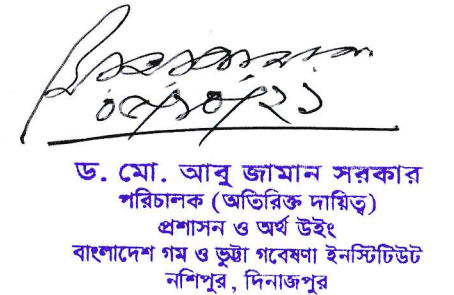 ০৫/১০/২১
ড. মো. আবু জামান সরকার
পরিচালক (অতিরিক্ত দায়িত্ব)
প্রশাসন ও অর্থ উইং
বাংলাদেশ গম ও ভুট্টা গবেষণা ইনস্টিটিউট
নশিপুর, দিনাজপুর